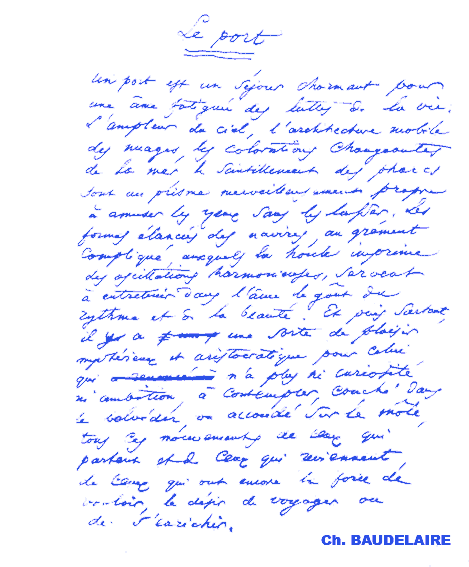 Le port
Un port est un séjour charmant pour
une âme fatiguée des luttes de la vie.
L'ampleur du ciel, l'architecture mobile
des nuages, les colorations changeantes
de la mer, le scintillement des phares
sont un prisme merveilleusement propre
à amuser les yeux sans les lasser. Les
formes élancées des navires, au gréement
compliqué, auxquels la houle imprime
des oscillations harmonieuses, servent
à entretenir dans l'âme le goût du
rythme et de la beauté. Et puis, surtout,
il y a une sorte de plaisir
mystérieux et aristocratique pour celui
qui n'a plus ni curiosité,
ni ambition, à contempler, couché dans
le belvédère ou accoudé sur le môle,
tous ces mouvements de ceux qui
partent et de ceux qui reviennent,
de ceux qui ont encore la force de
vouloir, le désir de voyager ou
de s'enrichir.
Ch. BAUDELAIRE